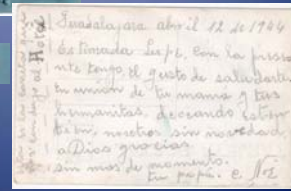 Guadalajara abril 12 de 1944
Estimada Lupe, Con la prese
nte tengo el gusto de saludarte
en union de tu mama y tus
hermanitas, deceando esten
bien, nosotros sin novedad
a Dios gracias.
sin mas de momento.
tu papá. e